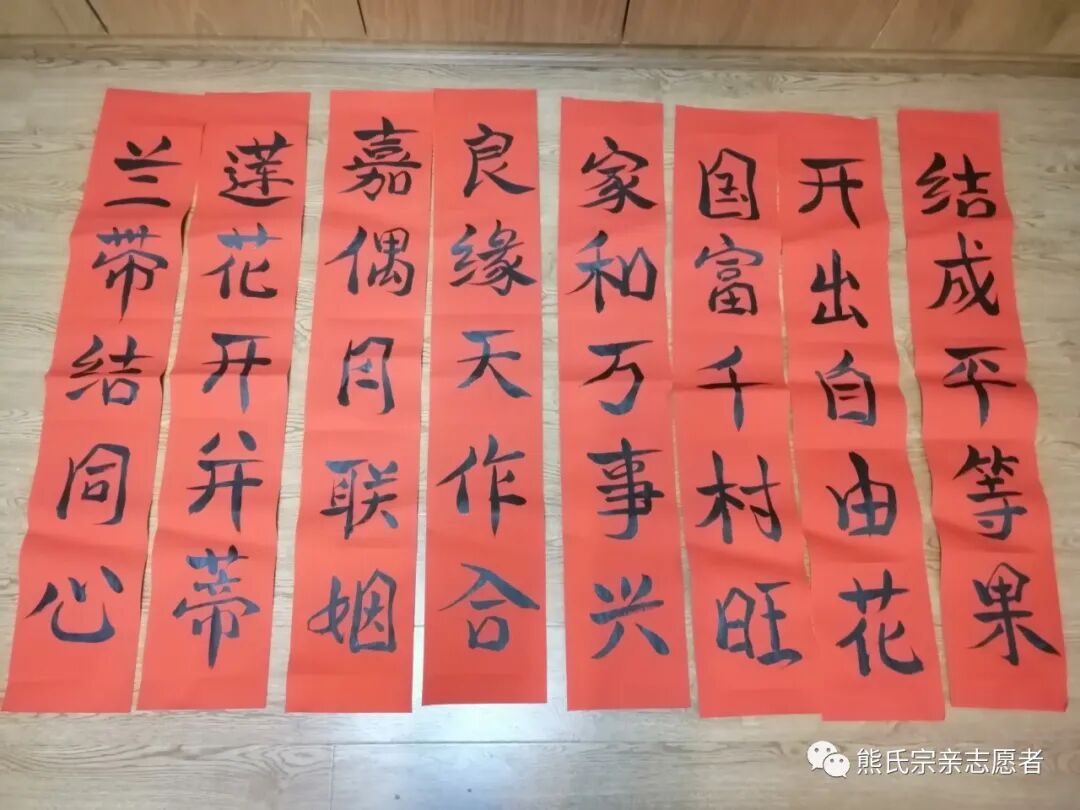 结成平等果
开出自由花
国富千村旺
家和万事兴
良缘天作合
嘉偶月联姻
莲花开并蒂
兰带结同心
熊氏宗亲志愿者